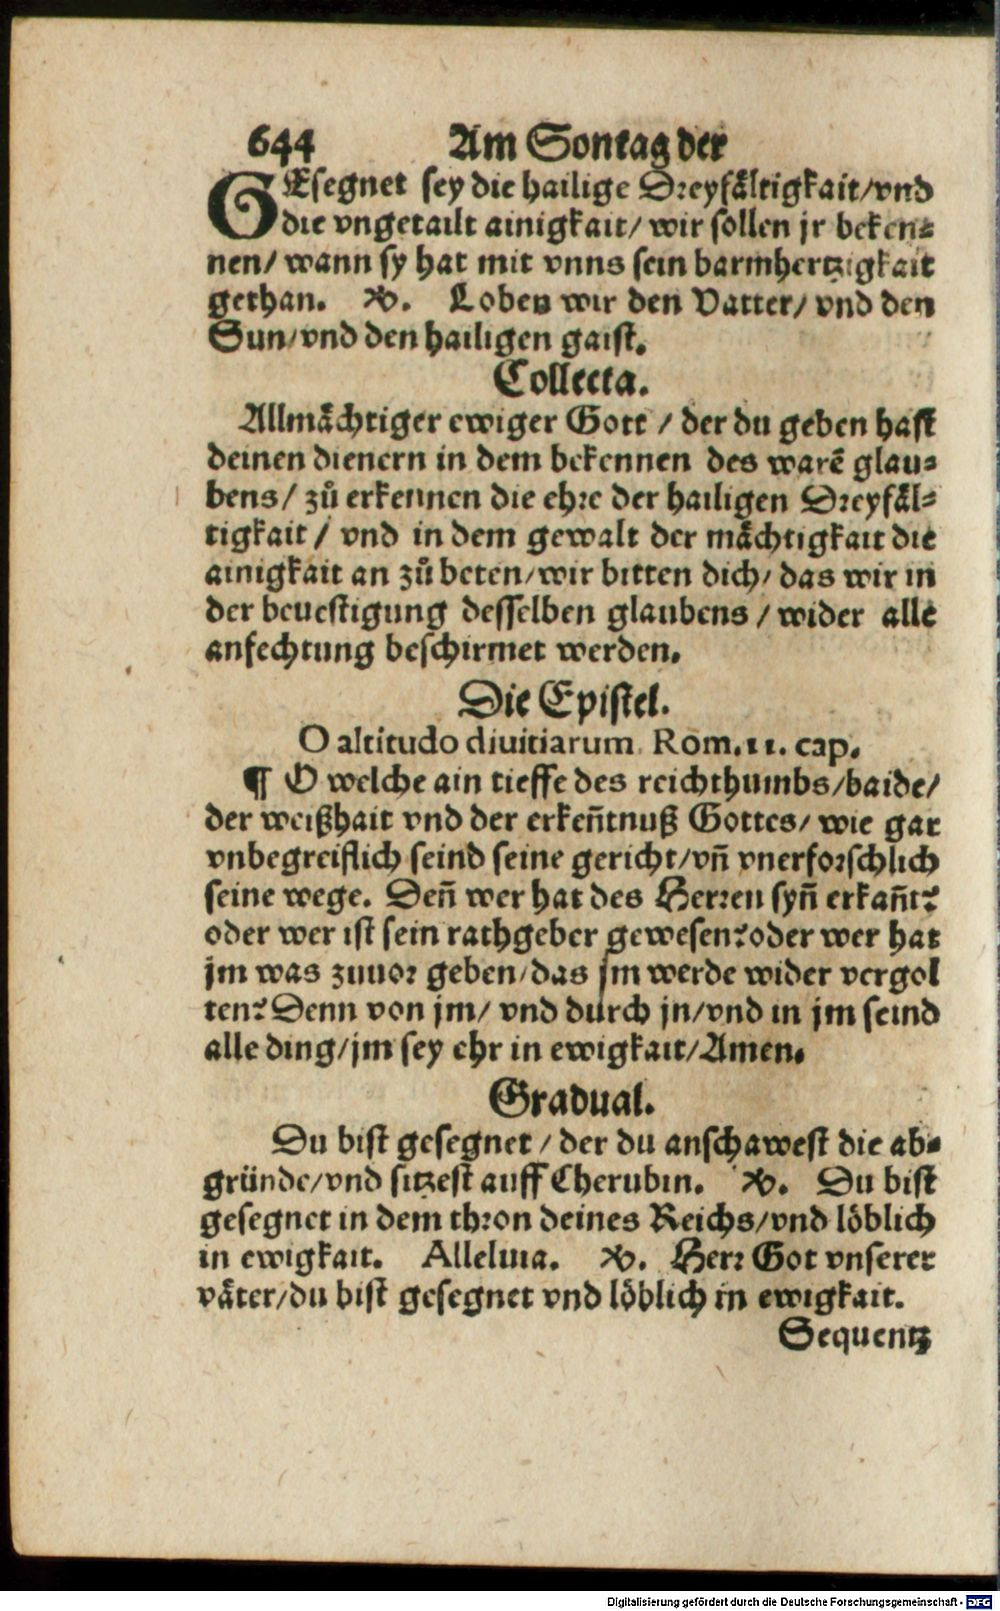 644 Am Sontag der
GEsegnet sey die hailige Dreyfåltigkait/vnd
die vngetailt ainigkait/ wir sollen jr beken⸗
nen/ wann sy hat mit vnns sein barmhertzigkait
gethan. ℣. Loben wir den Vatter/ vnd den
Sun/vnd den hailigen gaist.
Collecta.
Allmåchtiger ewiger Gott / der du geben hast
deinen dienern in dem bekennen des warē glau⸗
bens/ zů erkennen die ehre der hailigen Dreyfål⸗
tigkait / vnd in dem gewalt der måchtigkait die
ainigkait an zů beten/wir bitten dich/ das wir in
der beuestigung desselben glaubens / wider alle
anfechtung beschirmet werden.
Die Epistel.
O altitudo diuitiarum. Rom. 11. cap.
¶ O welche ain tieffe des reichthumbs/baide/
der weißhait vnd der erkeñtnuß Gottes/ wie gar
vnbegreiflich seind seine gericht/vñ vnerforschlich
seine wege. Deñ wer hat des Herren syñ erkañt?
oder wer ist sein rathgeber gewesen?oder wer hat
jm was zuuor geben/das jm werde wider vergol
ten? Denn von jm/ vnd durch jn/vnd in jm seind
alle ding/jm sey ehr in ewigkait/Amen.
Gradual.
Du bist gesegnet / der du anschawest die ab⸗
gründe/vnd sitzest auff Cherubin. ℣. Du bist
gesegnet in dem thron deines Reichs/vnd löblich
in ewigkait. Alleluia. ℣. Herr Got vnserer
våter/du bist gesegnet vnd löblich in ewigkait.
Sequentz
Digitalisierung gefördert durch die Deutsche Forschungsgemeinschaft - DFG